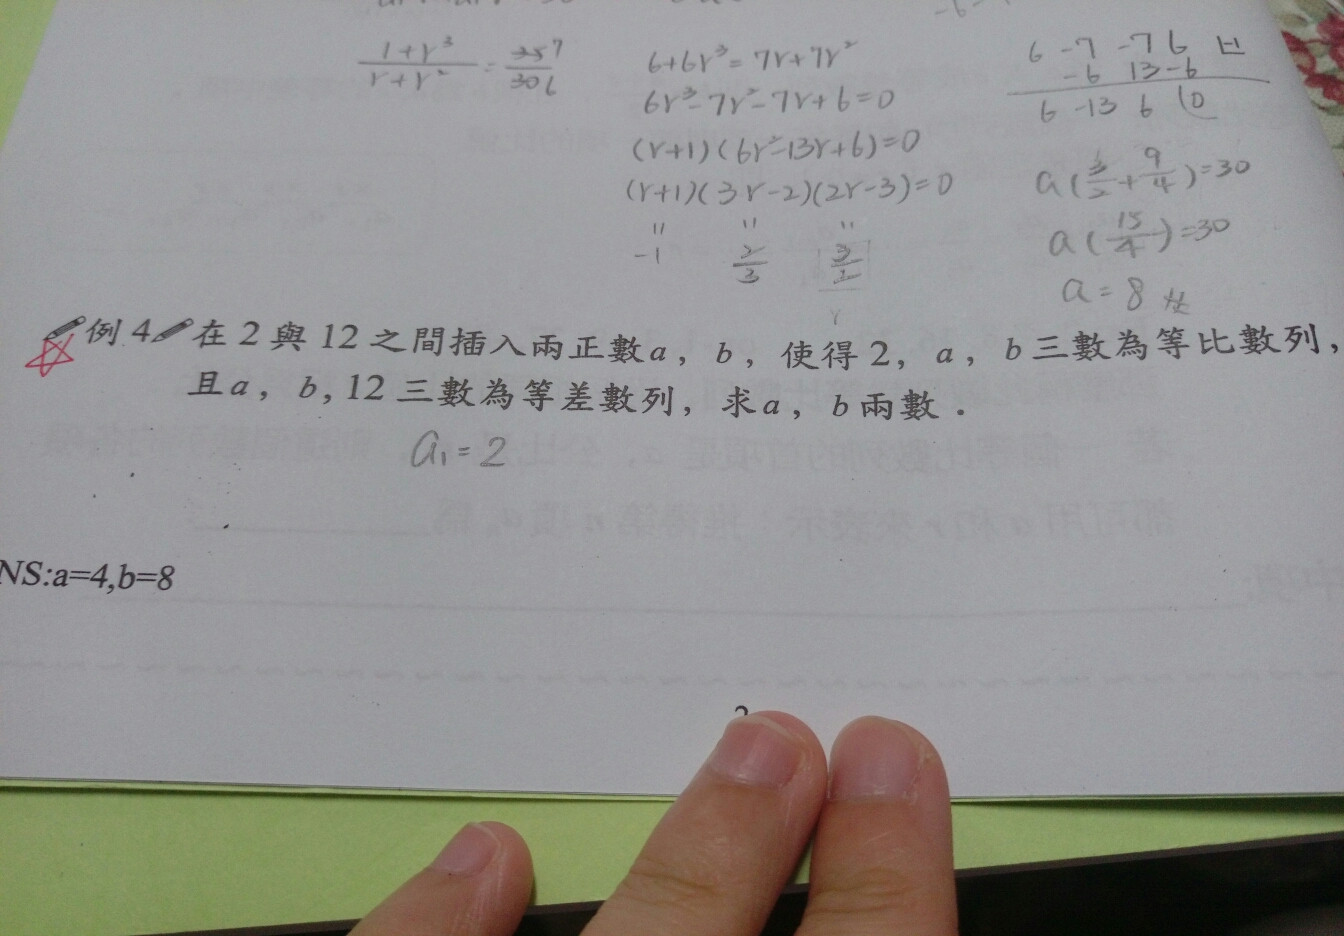 1+r³/r+r² = 357/306
6+6r³=7r+7r²
6r³-7r²-7r+6=0
(r+1)(6r²-13r+6)=0
(r+1)(3r-2)(2r-3)=0
" " "
-1 2/3 3/2
r
6 -7 -7 6 |-1
-6 13 -6
6 -13 6 0
a(3/2+9/4)=30
a(15/4)=30
a=8
例4 在2與12之間插入兩正數a，b，使得2，a，b三數為等比數列，
且a，b，12三數為等差數列，求a，b兩數．
a₁=2
NS:a=4,b=8